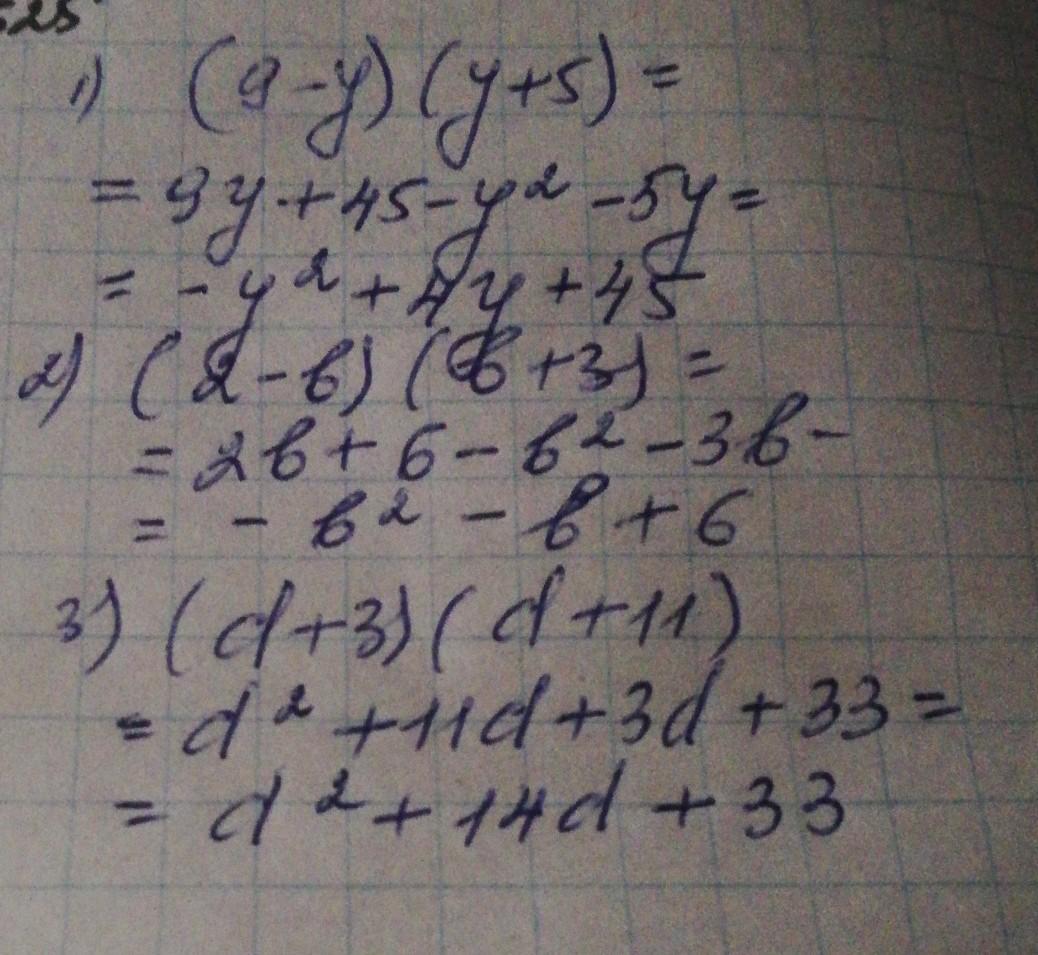 525
1) (9-y)(y+5)=
=9y+45-y²-5y=
=-y²+4y+45
2) (2-b)(b+3)=
=2b+6-b²-3b-
=-b²-b+6
3) (d+3)(d+11)
=d²+11d+3d+33=
=d²+14d+33